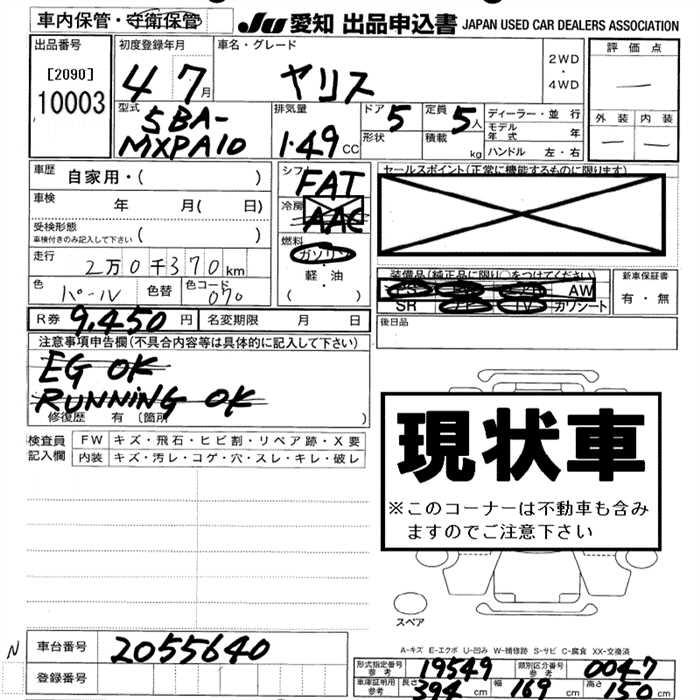 車内保管・守衛保管
JU 愛知 出品申込書 JAPAN USED CAR DEALERS ASSOCIATION
出品番号
[2090]
10003
初度登録年月
4 7月
車名・グレード
ヤリス
2WD
・
4WD
評価点
—
外装 内装
— —
型式
5BA-
MXPA10
排気量
1.49 CC
ドア 5
形状
定員 5人
積載 kg
ディーラー・並行
モデル年式 年
ハンドル 左・右
車歴 自家用・( )
車検 年 月( 日)
受検形態
車検付きのみ記入して下さい ( )
走行 2万0千370km
色 パール 色替 色コード 070
シフト
FAT
冷房
AAC
燃料
ガソリン
・
軽・油
( )
セールスポイント(正常に機能するものに限ります)
装備品(純正品に限り○をつけてください)
AW
SR TV カワシート
新車保証書
有・無
後日品
R券 9,450円 名変期限 月 日
注意事項申告欄(不具合内容等は具体的に記入して下さい)
EG OK
RUNNING OK
修復歴 有 [箇所 )
検査員
記入欄
FW キズ・飛石・ヒビ割・リペア跡・X要
内装 キズ・汚レ・コゲ・穴・スレ・キレ・破レ
現状車
※このコーナーは不動車も含み
ますのでご注意下さい
スペア
A-キズ E-エクボ U-凹み W-補修跡 S-サビ C-腐食 XX-交換済
N
車台番号 2055640
登録番号
形式指定番号 参考 19549 類別区分番号 参考 0047
車庫証明用 参考 長さ 394cm 幅 169cm 高さ 150cm